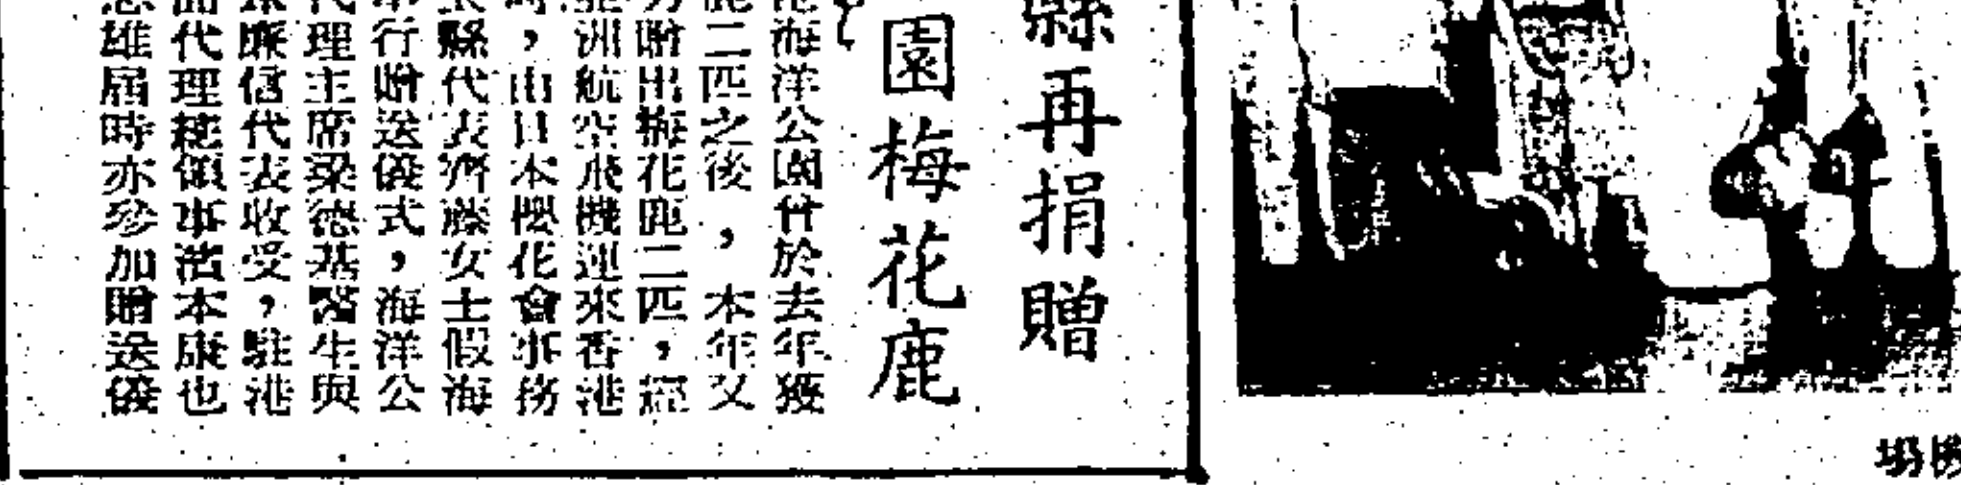 縣再捐贈
園梅花鹿
港海洋公園曾於去年獲
鹿二匹之後，本年又
贈出梅花鹿二匹，經
亞洲航空飛機運來香港
時，由日本櫻花會事務
縣代表齊藤女士假海
行贈送儀式，海洋公
代理主席梁德基醫生與
廉信代表收受，駐港
代理總領事濱本康也
雄屆時亦參加贈送儀